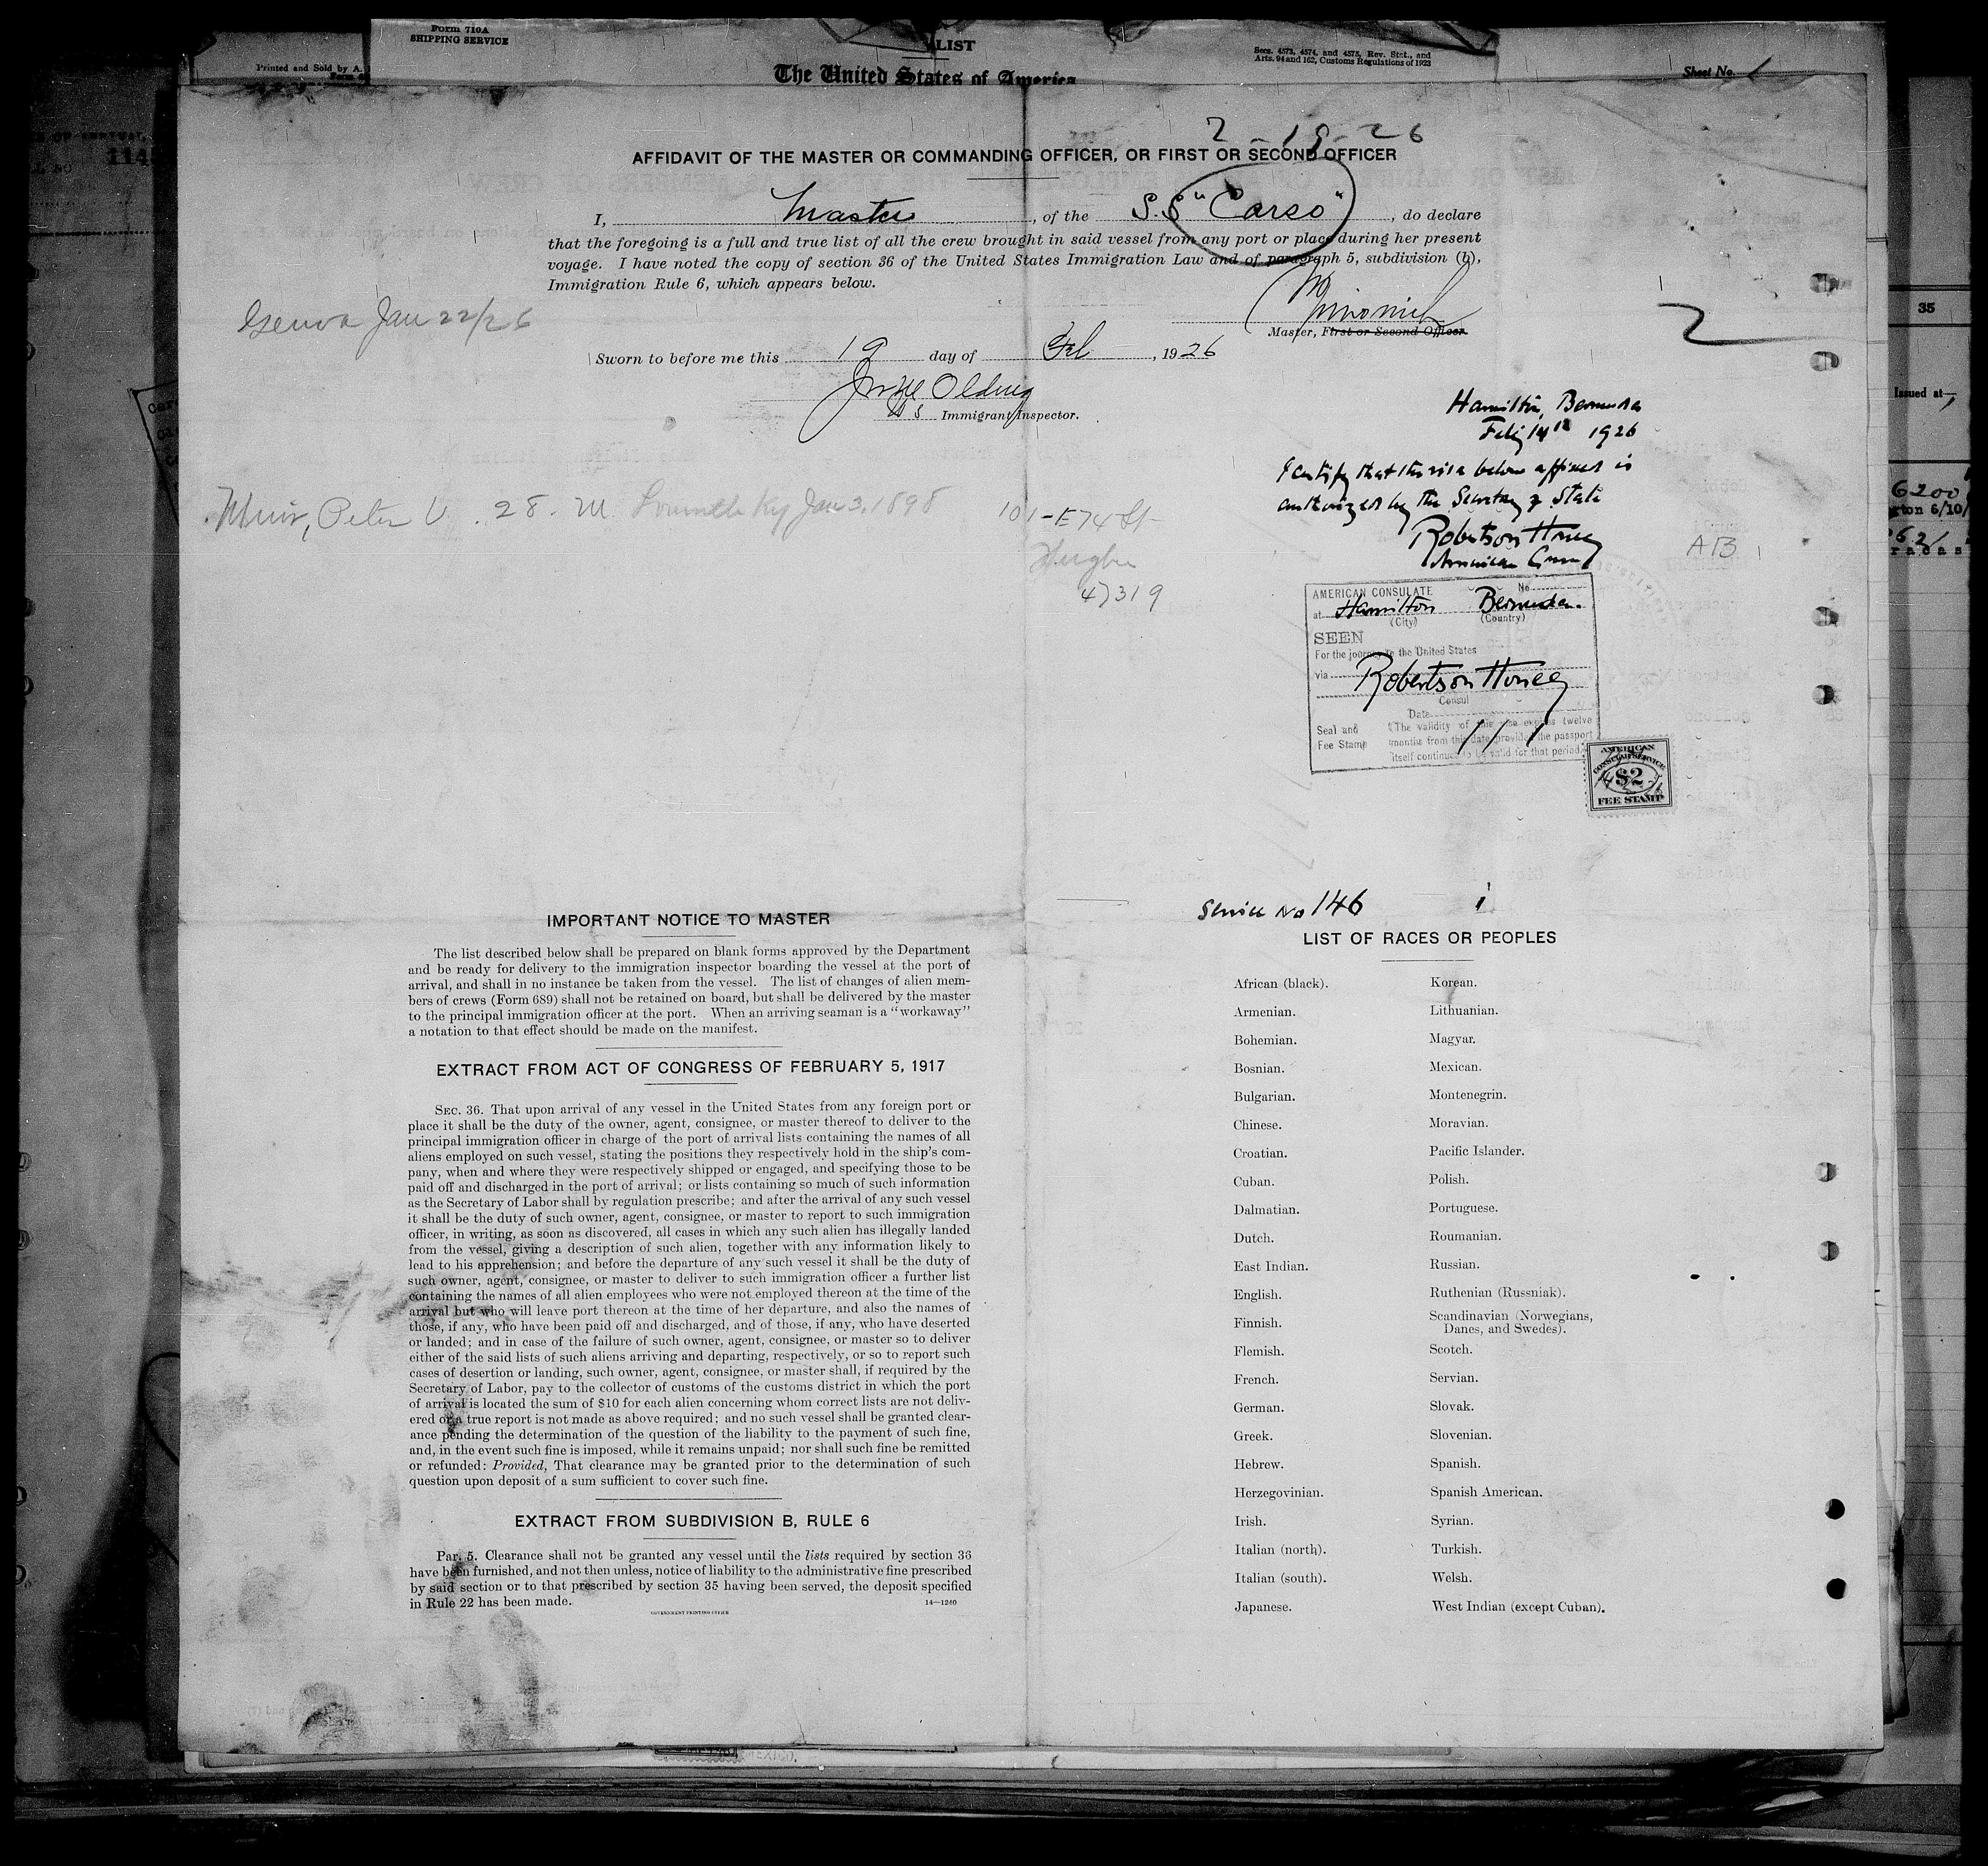 Form 710A
SHIPPING SERVICE
Printed and Sold by A.
LIST
The United States of America
Secs. 4573, 4574, and 4575, Rev. Stat., and
Arts. 94 and 162, Customs Regulations of 1923
Sheet No.
2-19-26
AFFIDAVIT OF THE MASTER OR COMMANDING OFFICER, OR FIRST OR SECOND OFFICER
I, Master, of the S.S "Carso", do declare
that the foregoing is a full and true list of all the crew brought in said vessel from any port or place during her present
voyage. I have noted the copy of section 36 of the United States Immigration Law and of paragraph 5, subdivision (b),
Immigration Rule 6, which appears below.
Genoa Jan 22/26
Master, First or Second Officer.
2
Sworn to before me this 19 day of Feb, 1926
Olding
US Immigrant Inspector.
Hamilton, Bermuda
Feby 14th 1926
I certify that the visa below affixed is
authorized by the Secretary of State
Robertson Honey
American Consul
Muir, Peter V. 28. M Louisville Ky Jan 3, 1898 101-E 74 St
47319
AB
AMERICAN CONSULATE No
at Hamilton Bermuda.
(City) (Country)
SEEN
For the journey to the United States
via
Robertson Honey
Consul
Date
Seal and
Fee Stamp
(The validity of this visa expires twelve
months from this date provided the passport
itself continues to be valid for that period.)
AMERICAN
CONSULAR SERVICE
$2
FEE STAMP
35
Issued at
6200
Service No 146
IMPORTANT NOTICE TO MASTER
The list described below shall be prepared on blank forms approved by the Department
and be ready for delivery to the immigration inspector boarding the vessel at the port of
arrival, and shall in no instance be taken from the vessel. The list of changes of alien mem-
bers of crews (Form 689) shall not be retained on board, but shall be delivered by the master
to the principal immigration officer at the port. When an arriving seaman is a "workaway"
a notation to that effect should be made on the manifest.
EXTRACT FROM ACT OF CONGRESS OF FEBRUARY 5, 1917
SEC. 36. That upon arrival of any vessel in the United States from any foreign port or
place it shall be the duty of the owner, agent, consignee, or master thereof to deliver to the
principal immigration officer in charge of the port of arrival lists containing the names of all
aliens employed on such vessel, stating the positions they respectively hold in the ship's com-
pany, when and where they were respectively shipped or engaged, and specifying those to be
paid off and discharged in the port of arrival; or lists containing so much of such information
as the Secretary of Labor shall by regulation prescribe; and after the arrival of any such vessel
it shall be the duty of such owner, agent, consignee, or master to report to such immigration
officer, in writing, as soon as discovered, all cases in which any such alien has illegally landed
from the vessel, giving a description of such alien, together with any information likely to
lead to his apprehension; and before the departure of any such vessel it shall be the duty of
such owner, agent, consignee, or master to deliver to such immigration officer a further list
containing the names of all alien employees who were not employed thereon at the time of the
arrival but who will leave port thereon at the time of her departure, and also the names of
those, if any, who have been paid off and discharged, and of those, if any, who have deserted
or landed; and in case of the failure of such owner, agent, consignee, or master so to deliver
either of the said lists of such aliens arriving and departing, respectively, or so to report such
cases of desertion or landing, such owner, agent, consignee, or master shall, if required by the
Secretary of Labor, pay to the collector of customs of the customs district in which the port
of arrival is located the sum of $10 for each alien concerning whom correct lists are not deliv-
ered or a true report is not made as above required; and no such vessel shall be granted clear-
ance pending the determination of the question of the liability to the payment of such fine,
and, in the event such fine is imposed, while it remains unpaid; nor shall such fine be remitted
or refunded: Provided, That clearance may be granted prior to the determination of such
question upon deposit of a sum sufficient to cover such fine.
EXTRACT FROM SUBDIVISION B, RULE 6
Par. 5. Clearance shall not be granted any vessel until the lists required by section 36
have been furnished, and not then unless, notice of liability to the administrative fine prescribed
by said section or to that prescribed by section 35 having been served, the deposit specified
in Rule 22 has been made.
GOVERNMENT PRINTING OFFICE 14—1240
LIST OF RACES OR PEOPLES
African (black). Korean.
Armenian. Lithuanian.
Bohemian. Magyar.
Bosnian. Mexican.
Bulgarian. Montenegrin.
Chinese. Moravian.
Croatian. Pacific Islander.
Cuban. Polish.
Dalmatian. Portuguese.
Dutch. Roumanian.
East Indian. Russian.
English. Ruthenian (Russniak).
Finnish. Scandinavian (Norwegians,
Danes, and Swedes).
Flemish. Scotch.
French. Servian.
German. Slovak.
Greek. Slovenian.
Hebrew. Spanish.
Herzegovinian. Spanish American.
Irish. Syrian.
Italian (north). Turkish.
Italian (south). Welsh.
Japanese. West Indian (except Cuban).